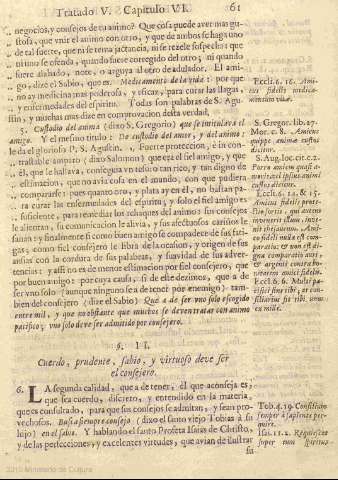 Tratado V. Capitulo VI. 61
negocios, y consejos de tu animo? Que cosa puede aver mas gus-
tosa, que vnir el animo con otro, y que de ambos se haga vno
de tal suerte, que ni se tema jactancia, ni se rezele sospecha: que
ni vno se ofenda, quando fuere corregido del otro; ni quando
fuere alabado, note, o arguya al otro de adulador. El ami-
go, dize el Sabio, que es. Medicamento de la vida: por que
no ay medicina mas poderosa, y eficaz, para curar las llagas,
y enfermedades del espiritu. Todas son palabras de S. Agus-
tin, y muchas mas dize en comprovacion desta verdad.
5. Custodio del animo (dixo S. Gregorio) que se intitulava el
amigo. Y el mesmo titulo: De custodio del amor, y del animo:
le da el glorioso P. S. Agustin. Fuerte proteccion, è in con-
trastable amparo (dixo Salomon) que era el fiel amigo, y que
èl, que le hallava, conseguia vn tesoro tan rico, y tan digno de
estimacion, que no avia cosa en el mundo, con que pudiera
compararse: pues quanto oro, y plata ay en èl, no bastan pa-
ra curar las enfermedades del espiritu; y solo el fiel amigo es
suficiente, para remediar los achaques del animo: sus consejos
le alientan, su comunicacion le alivia, y sus afectuosos cariños le
sanan: y finalmente si como buen amigo se compadece de sus fati-
gas; como fiel consejero le libra de la ocasion, y origen de sus
ansias con la cordura de sus palabras, y suavidad de sus adver-
tencias: y assi no es de menor estimacion por fiel consejero; que
por buen amigo: por cuya causa, si de este dezimos, que a de
ser vno solo (aunque ninguno se a de tener por enemigo) tam-
bien del consejero (dize el Sabio) Que a de ser vno solo escogido
entre mil, y que no obstante que muchos se devan tratar con animo
pacifico; vno solo deve ser admitido por consejero.
§. II.
Cuerdo, prudente, sabio, y virtuoso deve ser
el consejero.
6. LA segunda calidad, que a de tener, èl que aconseja es,
que sea cuerdo, discreto, y entendido en la materia,
que es consultado, para que sus consejos se admitan, y sean pro-
vechosos. Busca siempre consejo (dixo el santo viejo Tobias à su
hijo) en el sabio. Y hablando el santo Profeta Isaias de Christo,
y de las perfecciones, y excelentes virtudes, que avian de ilustrar
su
Eccli. 6. 16. Ami-
cus fidelis medica-
mentum vitæ.
S. Gregor. lib. 27.
Mor. c. 8. Amicus
quippe animi custos
dicitur.
S. Aug. loc. cit. c. 2.
amicus quasi a-
moris vel ipsius animi
custos dicitur.
Eccli. 6. 14. & 15.
Amicus fidelis prote-
ctio fortis, qui autem
invenerit illum, inve-
nit thesaurum. Ami-
co fideli nulla est com-
paratio: & non est di-
gna ponderatio auri,
& argenti contra bo-
nitatem amici fidelis.
Eccli. 6. 6. Multi pa-
cifici sint tibi, & con-
siliarius sit tibi unus
ex mille.
Tob. 4. 19. Consilium
semper à sapiente per-
quire.
Isai. 11. 2. Requiescet
super eum Spiritus
2010 Ministerio de Cultura